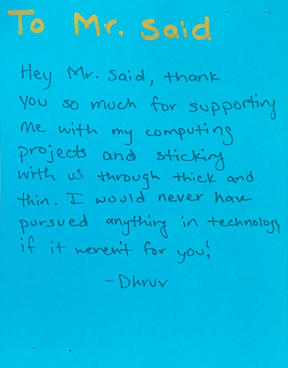 To Mr. Said
Hey Mr. Said, thank
you so much for supporting
me with my computing
projects and sticking
with us through thick and
thin. I would never have
pursued anything in technology
if it weren't for you!
-Dhruv